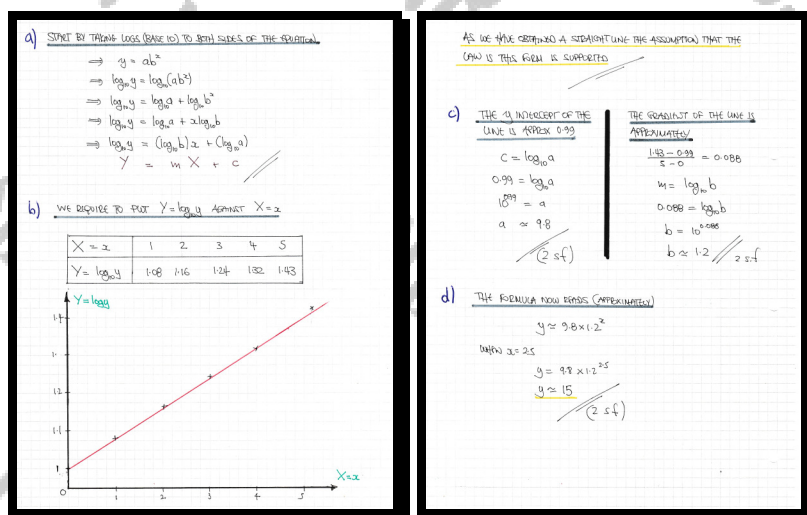 a) START BY TAKING LOGS (BASE 10) TO BOTH SIDES OF THE EQUATION
⇒ y = abˣ
⇒ log₁₀y = log₁₀(abˣ)
⇒ log₁₀y = log₁₀a + log₁₀bˣ
⇒ log₁₀y = log₁₀a + xlog₁₀b
⇒ log₁₀y = (log₁₀b)x + (log₁₀a)
Y = m X + c
b) WE REQUIRE TO PLOT Y=log₁₀y AGAINST X=x
X = x 1 2 3 4 5
Y= log₁₀y 1.08 1.16 1.24 1.32 1.43
Y=logy
1.4
1.2
1.1
1
0 1 2 3 4 5
X=x
AS WE HAVE OBTAINED A STRAIGHT LINE THE ASSUMPTION THAT THE
LAW IS THIS FORM IS SUPPORTED
c) THE Y INTERCEPT OF THE
LINE IS APPROX 0.99
C = log₁₀a
0.99 = log₁₀a
10⁰·⁹⁹ = a
a ≈ 9.8
(2 sf)
THE GRADIENT OF THE LINE IS
APPROXIMATELY
1.43 - 0.99 / 5 - 0 = 0.088
m = log₁₀b
0.088 = log₁₀b
b = 10⁰·⁰⁸⁸
b ≈ 1.2
2 sf
d) THE FORMULA NOW READS (APPROXIMATELY)
y ≈ 9.8×1.2ˣ
WHEN x=2.5
y = 9.8 ×1.2²·⁵
y ≈ 15
(2 sf)